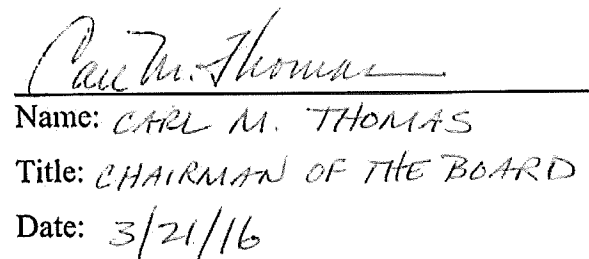 Carl M. Thomas
Name: CARL M. THOMAS
Title: CHAIRMAN OF THE BOARD
Date: 3/21/16